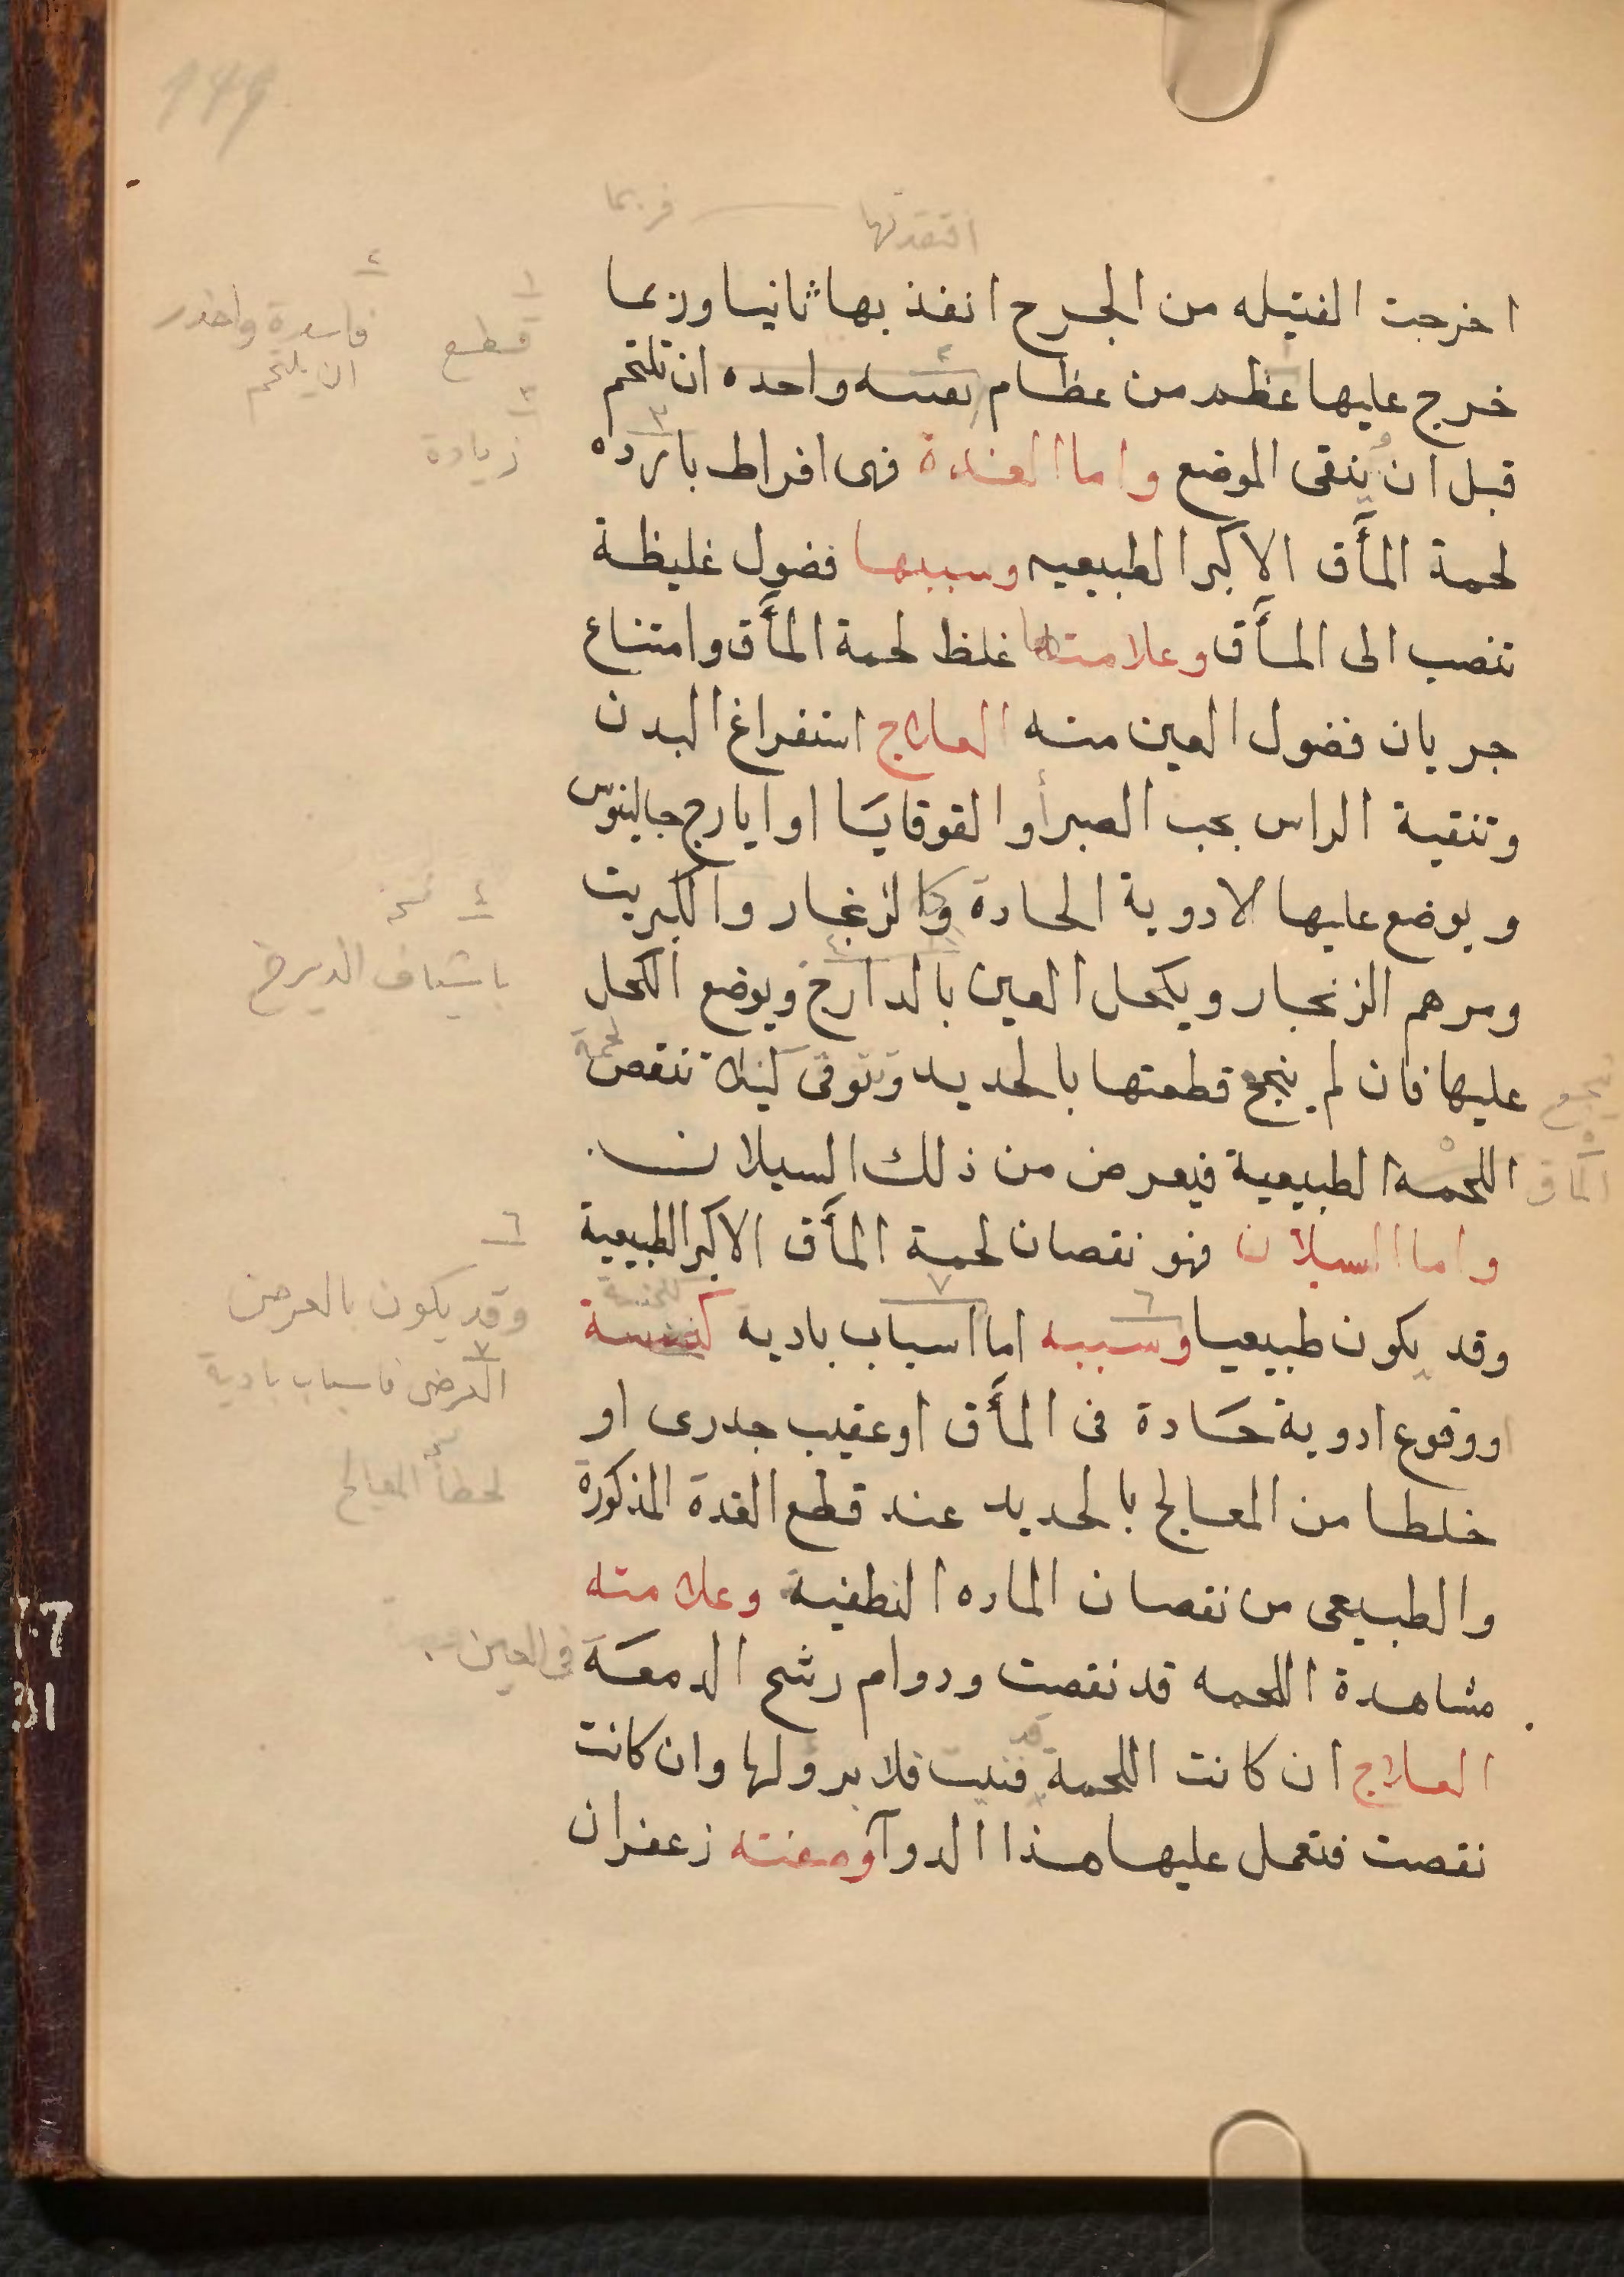 149
افتقدتها
فربما
اخرجت الفتيله من الجرح انفذ بها ثانيا وربما
١ قطع
٢ فاسدة واحذر
ان يلتحم
خرج عليها عظم من عظام واحده ان تلتحم
٣ زيادة
قبل ان ينقى الموضع واما الغدة فهى افراط بارده
لحمة المأق الاكبر الطبيعيه وسببها فضول غليظة
تنصب الى المأق وعلامتها غلظ لحمة المأق وامتناع
جريان فضول العين منه العلاج استفراغ البدن
وتنقية الراس بحب الصبر أو القوقايا او ايارج جالينوس
ويوضع عليها الادوية الحادة كالزنجار والكبريت
٤ نسخه
باشياف الديزج
ومرهم الزنجار ويكحل العين بالدارج ويوضع الكحل
عليها فان لم ينجح قطعتها بالحديد وتتوقى كيلا تنقص لحمة
اللحمه الطبيعية فيعرض من ذلك السيلان
٥ المأق
واما السيلان فهو نقصان لحمة المأق الاكبر الطبيعية
٦
وقد يكون بالعرض
وقد يكون طبيعيا وسببه اما اسباب باديه
٧
العرضى فاسباب بادية
او وقوع ادوية حادة فى المأق او عقيب جدرى او
لخطأ المعالج
خلطا من المعالج بالحديد عند قطع الغدة المذكورة
والطبيعى من نقصان الماده النطفية وعلامته
مشاهدة اللحمه قد نقصت ودوام رشح الدمعة فى العين
العلاج ان كانت اللحمة قد فنيت فلا برو لها وان كانت
نقصت فتعمل عليها هذا الدوآ وصفته زعفران